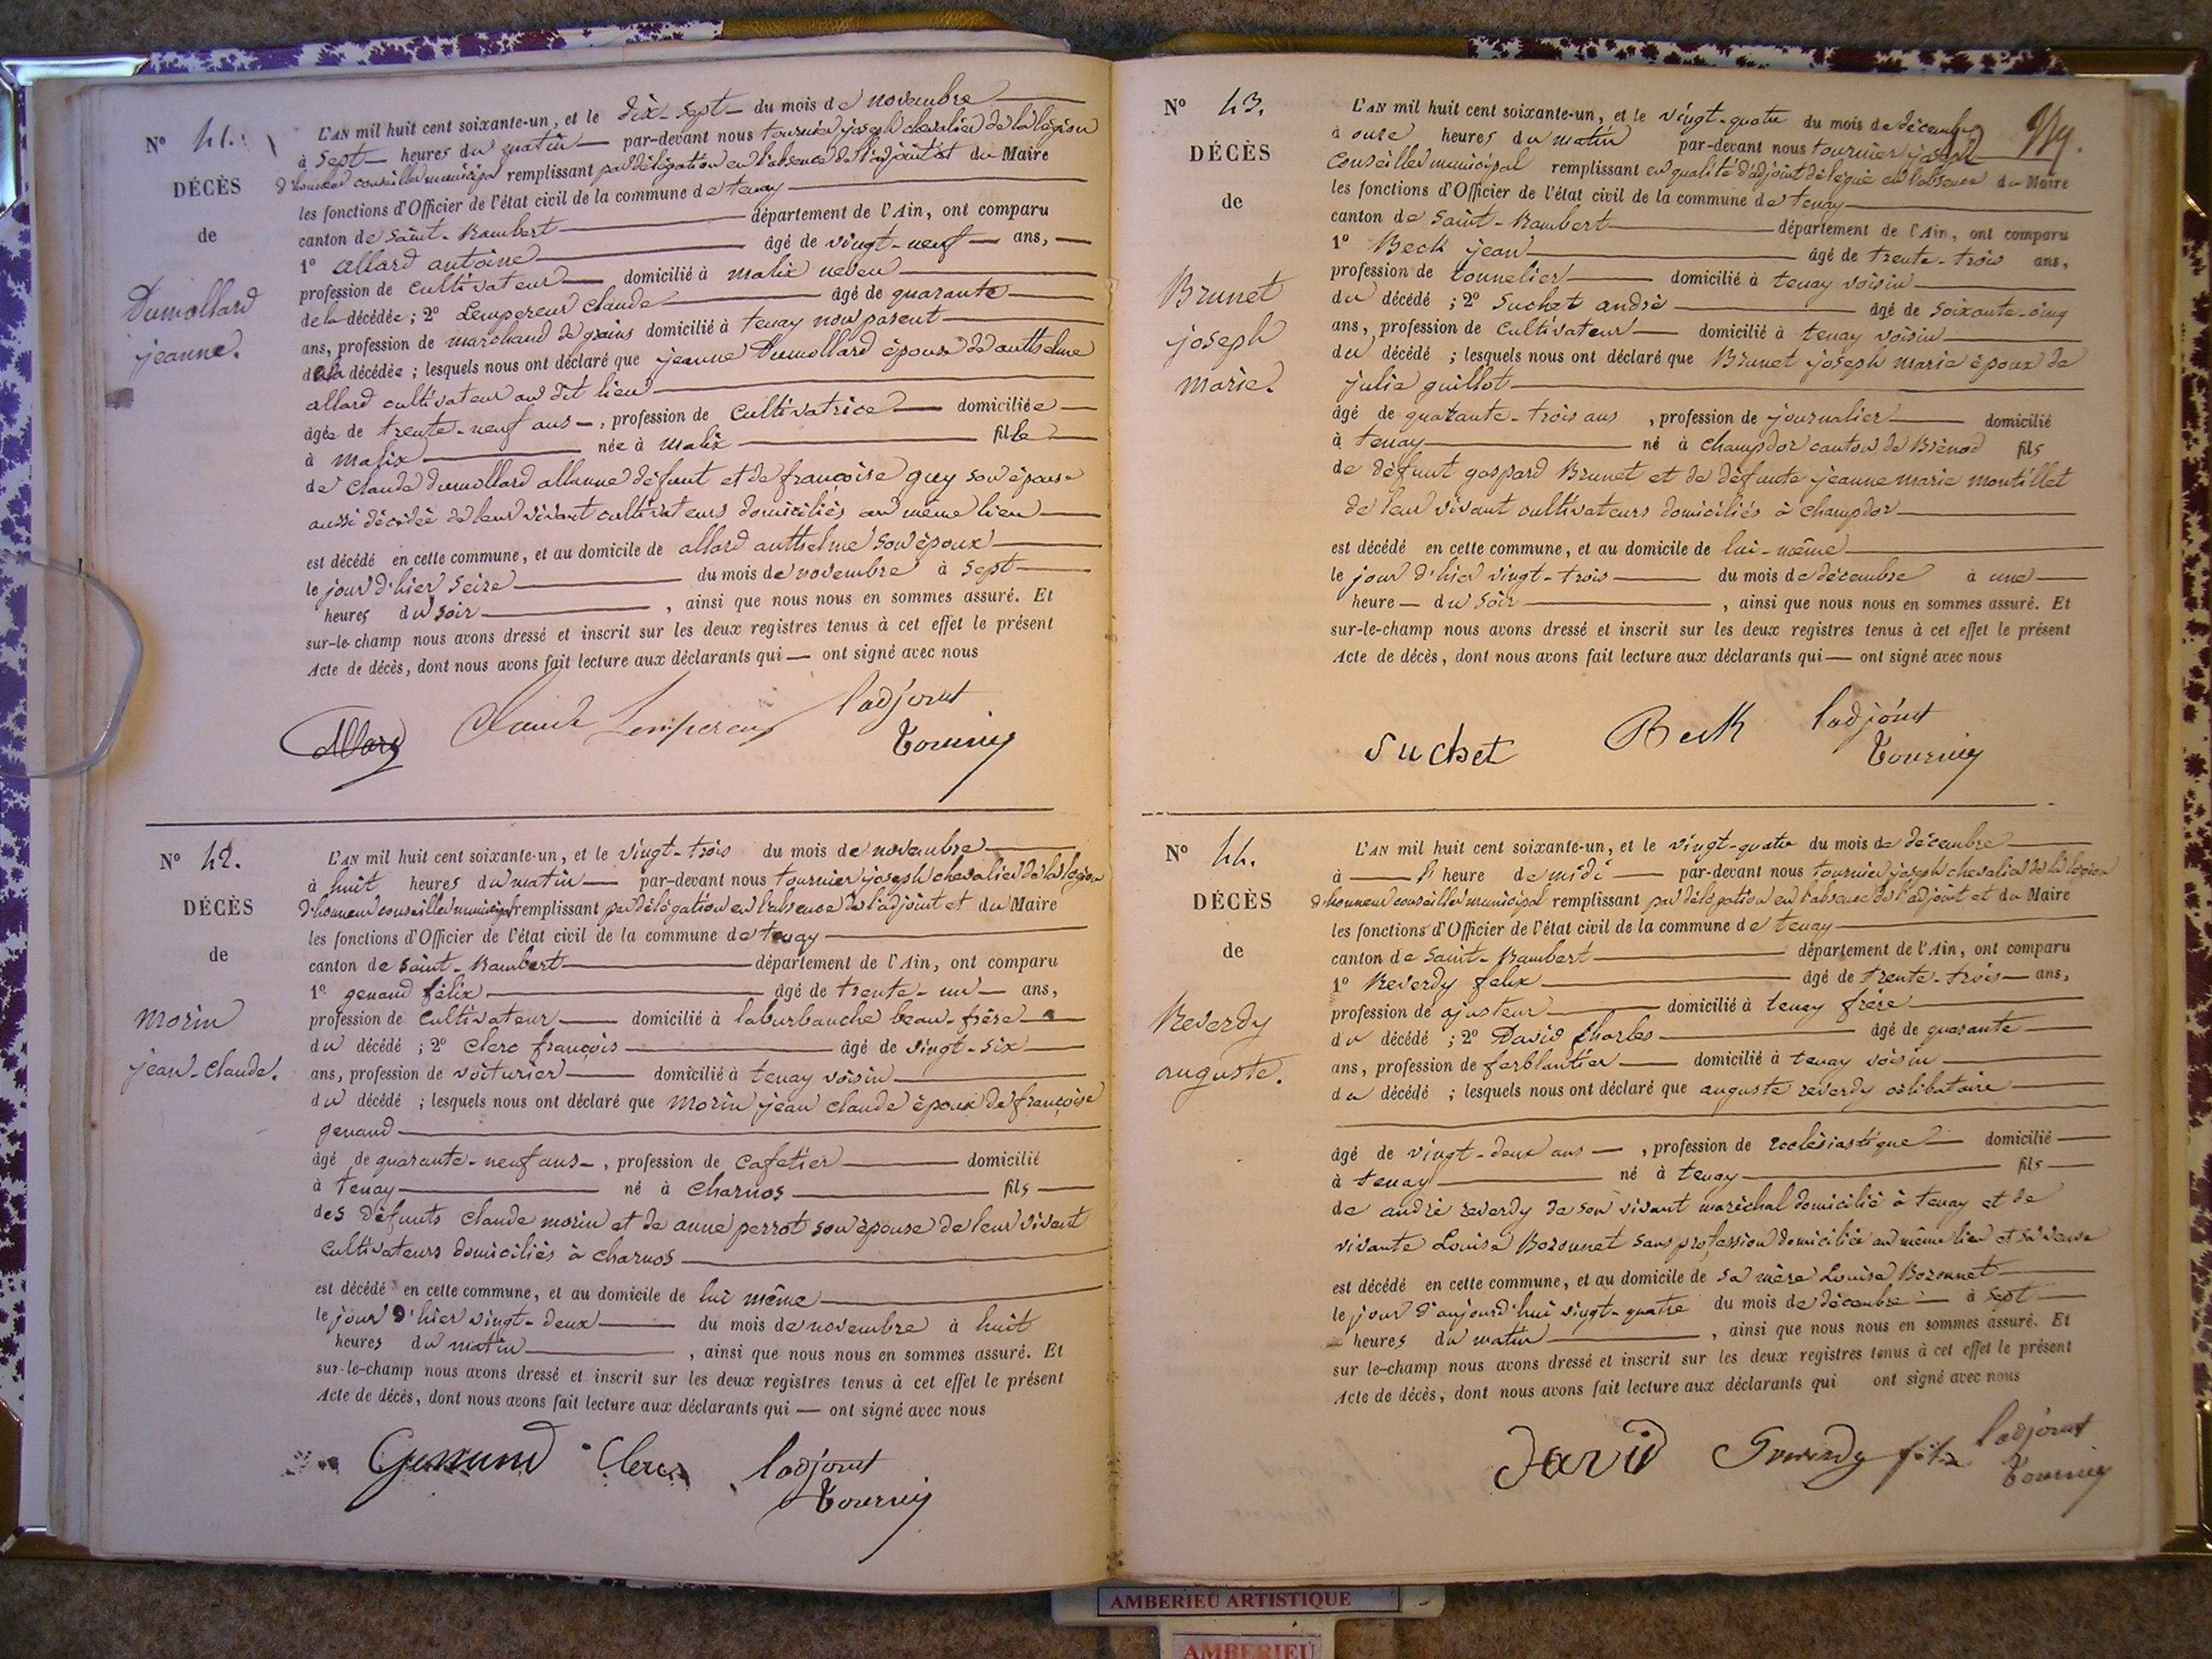 N° 41.
DÉCÈS
de
Dumollard
jeanne.
L'AN mil huit cent soixante-un, et le dix-sept du mois de novembre
à sept heures du matin par-devant nous tournier joseph chevalier de la légion
d'honneur conseiller municipal remplissant par délégation en l'absence de l'adjoint et du Maire
les fonctions d'Officier de l'état civil de la commune de tenay
canton de Saint-Rambert département de l'Ain, ont comparu
1° allard antoine âgé de vingt-neuf ans,
profession de cultivateur domicilié à malix neveu
de la décédée; 2° Lempereur Claude âgé de quarante
ans, profession de marchand de grains domicilié à tenay non parent
de la décédée; lesquels nous ont déclaré que jeanne Dumollard épouse de anthelme
allard cultivateur au dit lieu
âgée de trente-neuf ans, profession de Cultivatrice domiciliée
à malix née à malix fille
de Claude dumollard allanne défunt et de françoise guy son épouse
aussi décédée de leur vivant cultivateurs domiciliés au même lieu
est décédé en cette commune, et au domicile de allard anthelme son époux
le jour d'hier seize du mois de novembre à sept
heures du soir, ainsi que nous nous en sommes assuré. Et
sur-le-champ nous avons dressé et inscrit sur les deux registres tenus à cet effet le présent
Acte de décès, dont nous avons fait lecture aux déclarants qui ont signé avec nous
Allard Claude Lempereur l'adjoint
Tournier
N° 42.
DÉCÈS
de
morin
jean-Claude.
L'AN mil huit cent soixante-un, et le vingt-trois du mois de novembre
à huit heures du matin par-devant nous tournier joseph chevalier de la légion
d'honneur conseiller municipal remplissant par délégation en l'absence de l'adjoint et du Maire
les fonctions d'Officier de l'état civil de la commune de tenay
canton de Saint-Rambert département de l'Ain, ont comparu
1° genand félix âgé de trente-un ans,
profession de cultivateur domicilié à laburbanche beau-frère
du décédé; 2° Clerc françois âgé de vingt-six
ans, profession de voiturier domicilié à tenay voisin
du décédé; lesquels nous ont déclaré que morin jean claude époux de françoise
genand
âgé de quarante-neuf ans, profession de Cafetier domicilié
à tenay né à Charnos fils
des défunts Claude morin et de anne perrot son épouse de leur vivant
cultivateurs domiciliés à charnos
est décédé en cette commune, et au domicile de lui même
le jour d'hier vingt-deux du mois de novembre à huit
heures du matin, ainsi que nous nous en sommes assuré. Et
sur-le-champ nous avons dressé et inscrit sur les deux registres tenus à cet effet le présent
Acte de décès, dont nous avons fait lecture aux déclarants qui ont signé avec nous
Clerc l'adjoint
Tournier
N° 43.
DÉCÈS
de
Brunet
joseph
marie.
L'AN mil huit cent soixante-un, et le vingt-quatre du mois de décembre
à onze heures du matin par-devant nous tournier joseph
conseiller municipal remplissant en qualité d'adjoint délégué en l'absence du Maire
les fonctions d'Officier de l'état civil de la commune de tenay
canton de Saint-Rambert département de l'Ain, ont comparu
1° Beck jean âgé de trente-trois ans,
profession de tonnelier domicilié à tenay voisin
du décédé; 2° Suchet andré âgé de soixante-cinq
ans, profession de cultivateur domicilié à tenay voisin
du décédé; lesquels nous ont déclaré que Brunet joseph marie époux de
julie guillot
âgé de quarante-trois ans, profession de journalier domicilié
à tenay né à champdor canton de Brénod fils
de défunt gaspard Brunet et de défunte jeanne marie montillet
de leur vivant cultivateurs domiciliés à champdor
est décédé en cette commune, et au domicile de lui-même
le jour d'hier vingt-trois du mois de décembre à une
heure du soir, ainsi que nous nous en sommes assuré. Et
sur-le-champ nous avons dressé et inscrit sur les deux registres tenus à cet effet le présent
Acte de décès, dont nous avons fait lecture aux déclarants qui ont signé avec nous
Suchet Beck l'adjoint
Tournier
N° 44.
DÉCÈS
de
Reverdy
auguste.
L'AN mil huit cent soixante-un, et le vingt-quatre du mois de décembre
à l'heure de midi par-devant nous tournier joseph chevalier de la légion
d'honneur conseiller municipal remplissant par délégation en l'absence de l'adjoint et du Maire
les fonctions d'Officier de l'état civil de la commune de tenay
canton de Saint-Rambert département de l'Ain, ont comparu
1° Reverdy felix âgé de trente-trois ans,
profession de ajusteur domicilié à tenay frère
du décédé; 2° David Charles âgé de quarante
ans, profession de ferblantier domicilié à tenay voisin
du décédé; lesquels nous ont déclaré que auguste reverdy célibataire
âgé de vingt-deux ans, profession de ecclésiastique domicilié
à tenay né à tenay fils
de andré reverdy de son vivant maréchal domicilié à tenay et de
vivante Louise Bozonnet sans profession domiciliée au même lieu et sa veuve
est décédé en cette commune, et au domicile de sa mère Louise Bozonnet
le jour d'aujourd'hui vingt-quatre du mois de décembre à sept
heures du matin, ainsi que nous nous en sommes assuré. Et
sur le-champ nous avons dressé et inscrit sur les deux registres tenus à cet effet le présent
Acte de décès, dont nous avons fait lecture aux déclarants qui ont signé avec nous
David félix l'adjoint
Tournier
AMBERIEU ARTISTIQUE
AMBERIEU